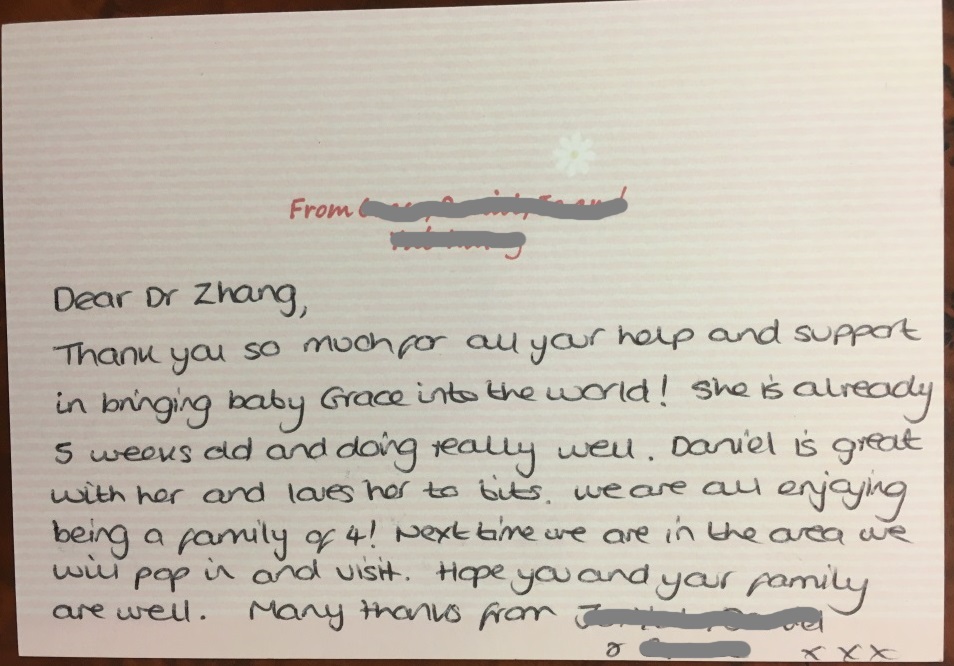 From
Dear Dr Zhang,
Thank you so much for all your help and support
in bringing baby Grace into the world! She is already
5 weeks old and doing really well. Daniel is great
with her and loves her to bits. We are all enjoying
being a family of 4! Next time we are in the area we
will pop in and visit. Hope you and your family
are well. Many thanks from
& x x x